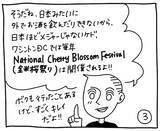 そうだね、日本みたいに
外でお酒を飲んだりできないから、
日本ほどメジャーじゃないけど、
ワシントンDCでは毎年
National Cherry Blossom Festival
(全米桜祭り)は開催されるよ!!
ボクもマケたことある
けど、すごくキレイ
だよ!!
3